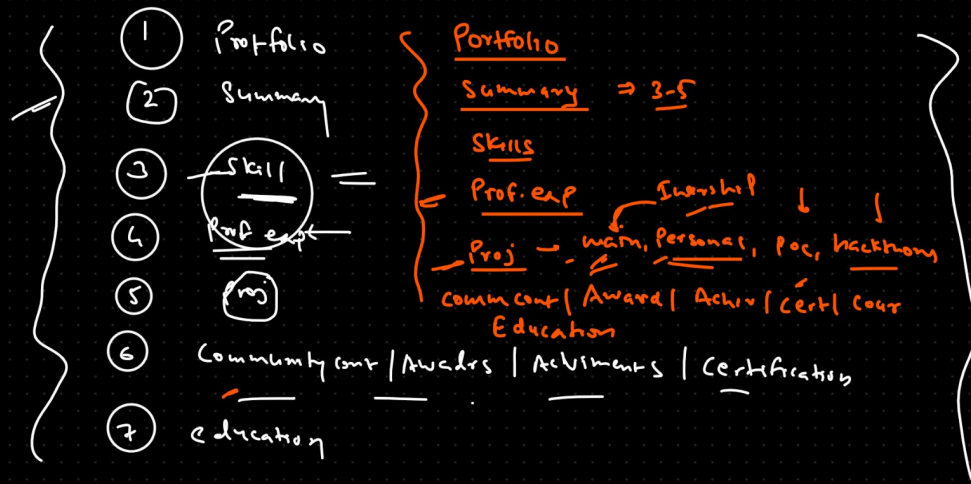 1 Protfolio
2 Summary
3 Skill
4 Prof exp
5 Proj
6 Community cont | Awadrs | Achiments | Certification
7 education
Portfolio
Summary ⇒ 3-5
Skills
Prof. exp
Inership
Proj → main, Personal, POC, hackthons
Comm cont / Award / Achiv / Cert / Cour
Education